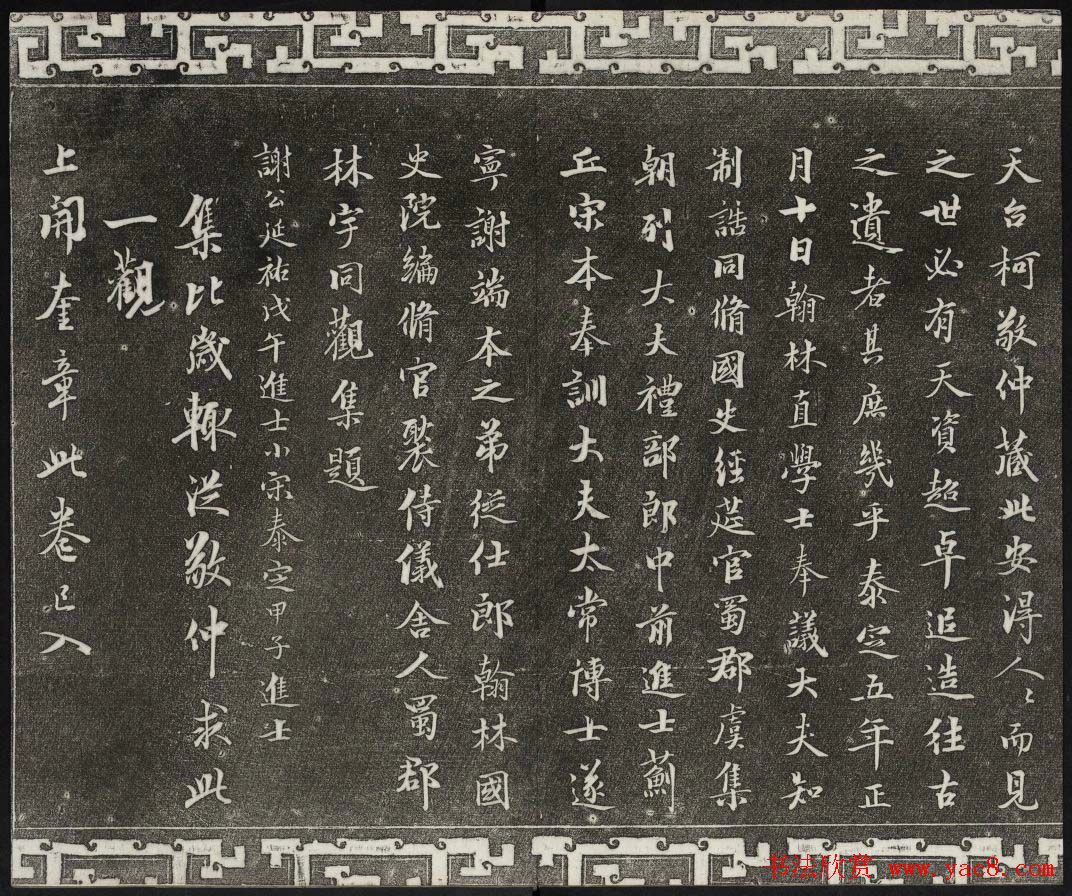 天台柯敬仲藏此安得人〻而見
之世必有天資超卓追造往古
之遺者其庶幾乎泰定五年正
月十日翰林直學士奉議大夫知
制誥同脩國史經筵官蜀郡虞集
朝列大夫禮部郎中前進士薊
丘宋本奉訓大夫太常博士遂
寧謝端本之弟從仕郎翰林國
史院編脩官褧侍儀舍人蜀郡
林宇同觀集題
謝公延祐戊午進士小宋泰定甲子進士
集比歲輒從敬仲求此
一觀
上開奎章此卷已入
书法欣赏 www.yac8.com